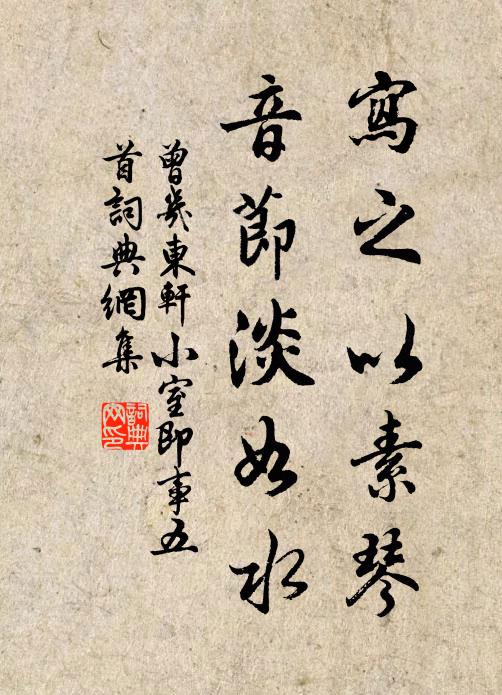 寫之以素琴
音節淡如水
曾幾東軒小室即事五
首詞典網集
詞典
网印